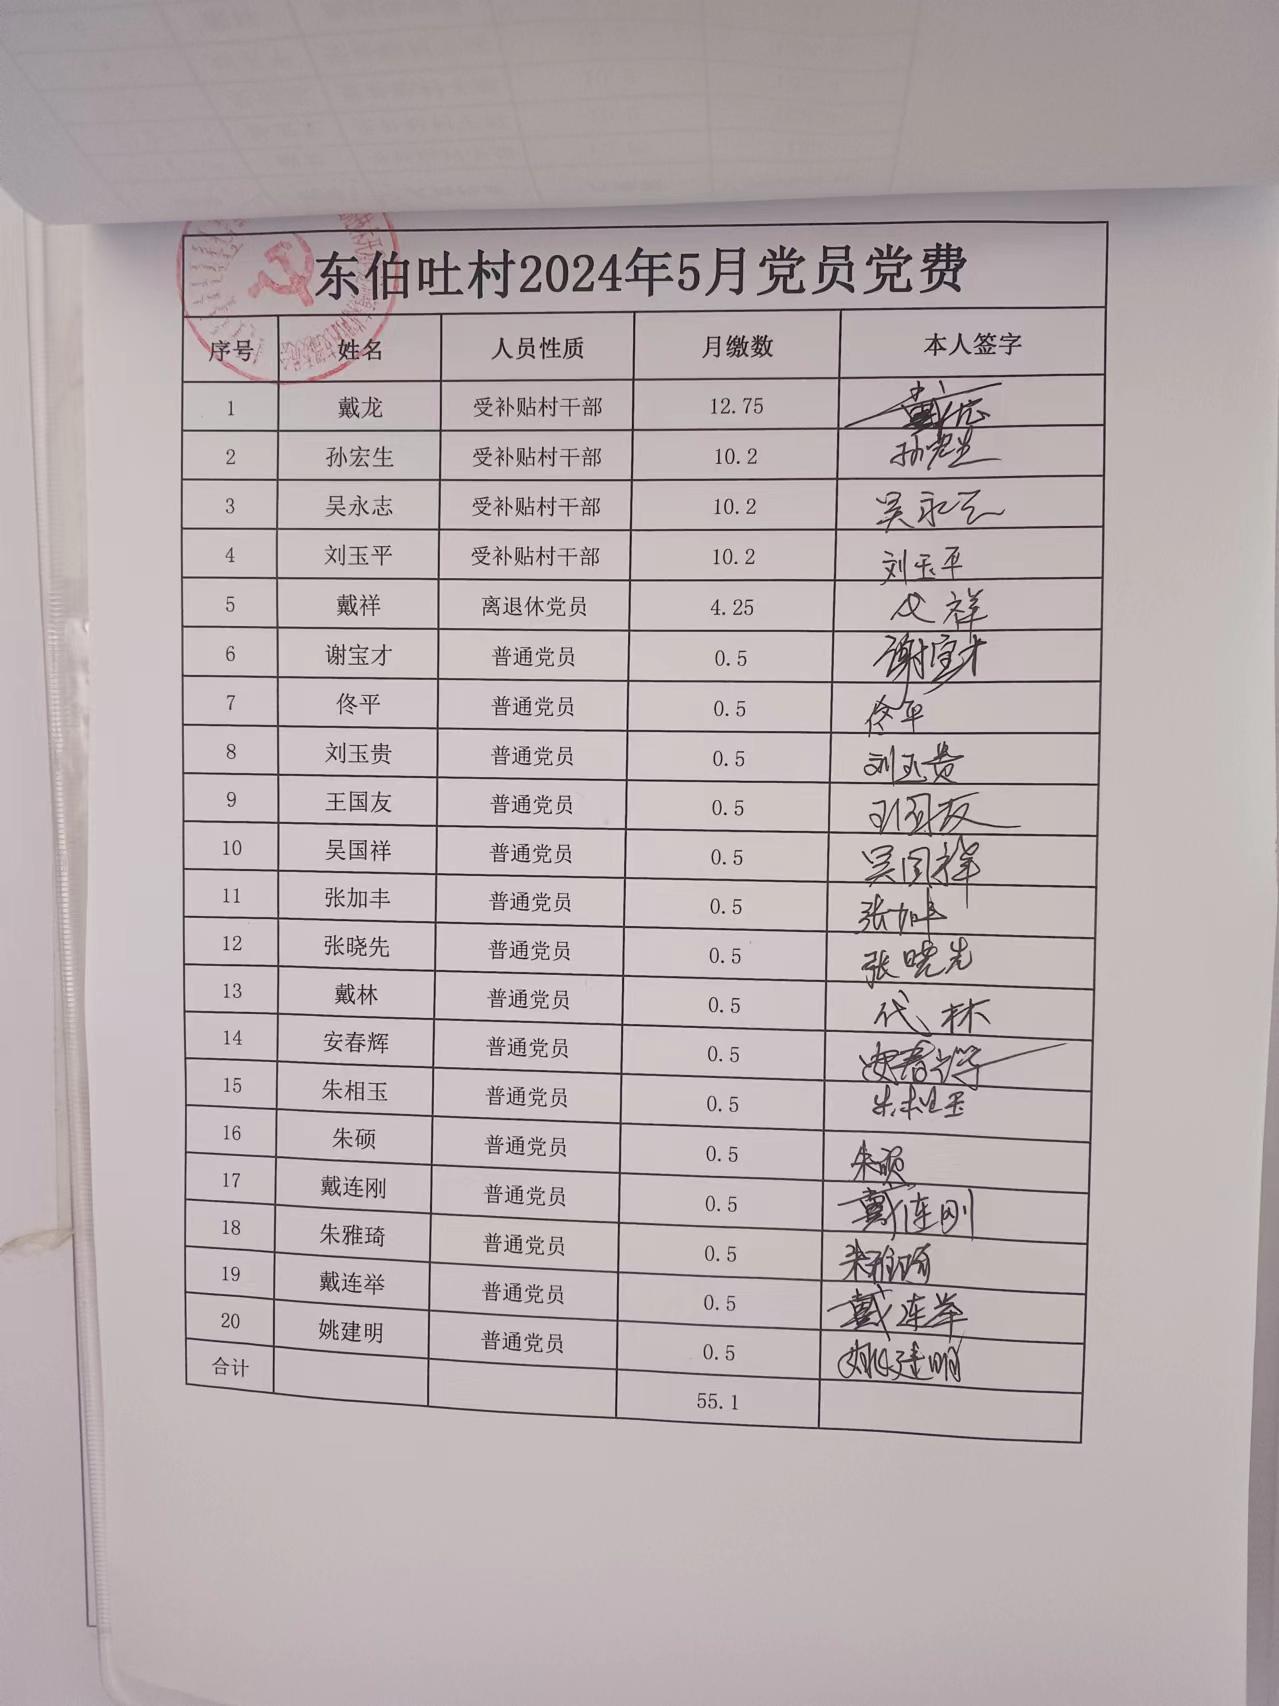 东伯吐村2024年5月党员党费
序号 姓名 人员性质 月缴数 本人签字
1 戴龙 受补贴村干部 12.75 戴龙
2 孙宏生 受补贴村干部 10.2 孙宏生
3 吴永志 受补贴村干部 10.2 吴永志
4 刘玉平 受补贴村干部 10.2 刘玉平
5 戴祥 离退休党员 4.25 代祥
6 谢宝才 普通党员 0.5 谢宝才
7 佟平 普通党员 0.5 佟平
8 刘玉贵 普通党员 0.5 刘玉贵
9 王国友 普通党员 0.5 王国友
10 吴国祥 普通党员 0.5 吴国祥
11 张加丰 普通党员 0.5 张加丰
12 张晓先 普通党员 0.5 张晓先
13 戴林 普通党员 0.5 代林
14 安春辉 普通党员 0.5 安春辉
15 朱相玉 普通党员 0.5 朱相玉
16 朱硕 普通党员 0.5 朱硕
17 戴连刚 普通党员 0.5 戴连刚
18 朱雅琦 普通党员 0.5 朱雅琦
19 戴连举 普通党员 0.5 戴连举
20 姚建明 普通党员 0.5 姚建明
合计 55.1